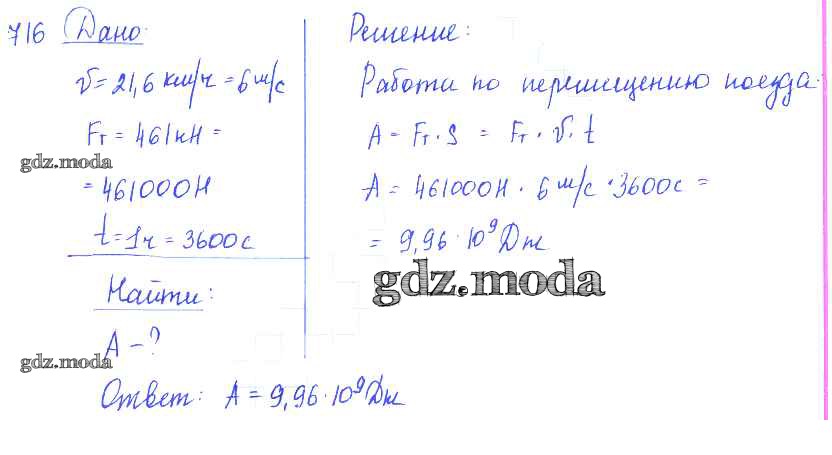 716 Дано:
v = 21,6 км/ч = 6 м/с
Fт = 461 кН =
gdz.moda
= 461000 Н
t = 1ч = 3600 с
Найти:
A - ?
gdz.moda
Решение:
Работа по перемещению поезда
A = Fт · S = Fт · v · t
A = 461000 Н · 6 м/с · 3600 с =
= 9,96 · 10⁹ Дж
gdz.moda
Ответ: A = 9,96 · 10⁹ Дж